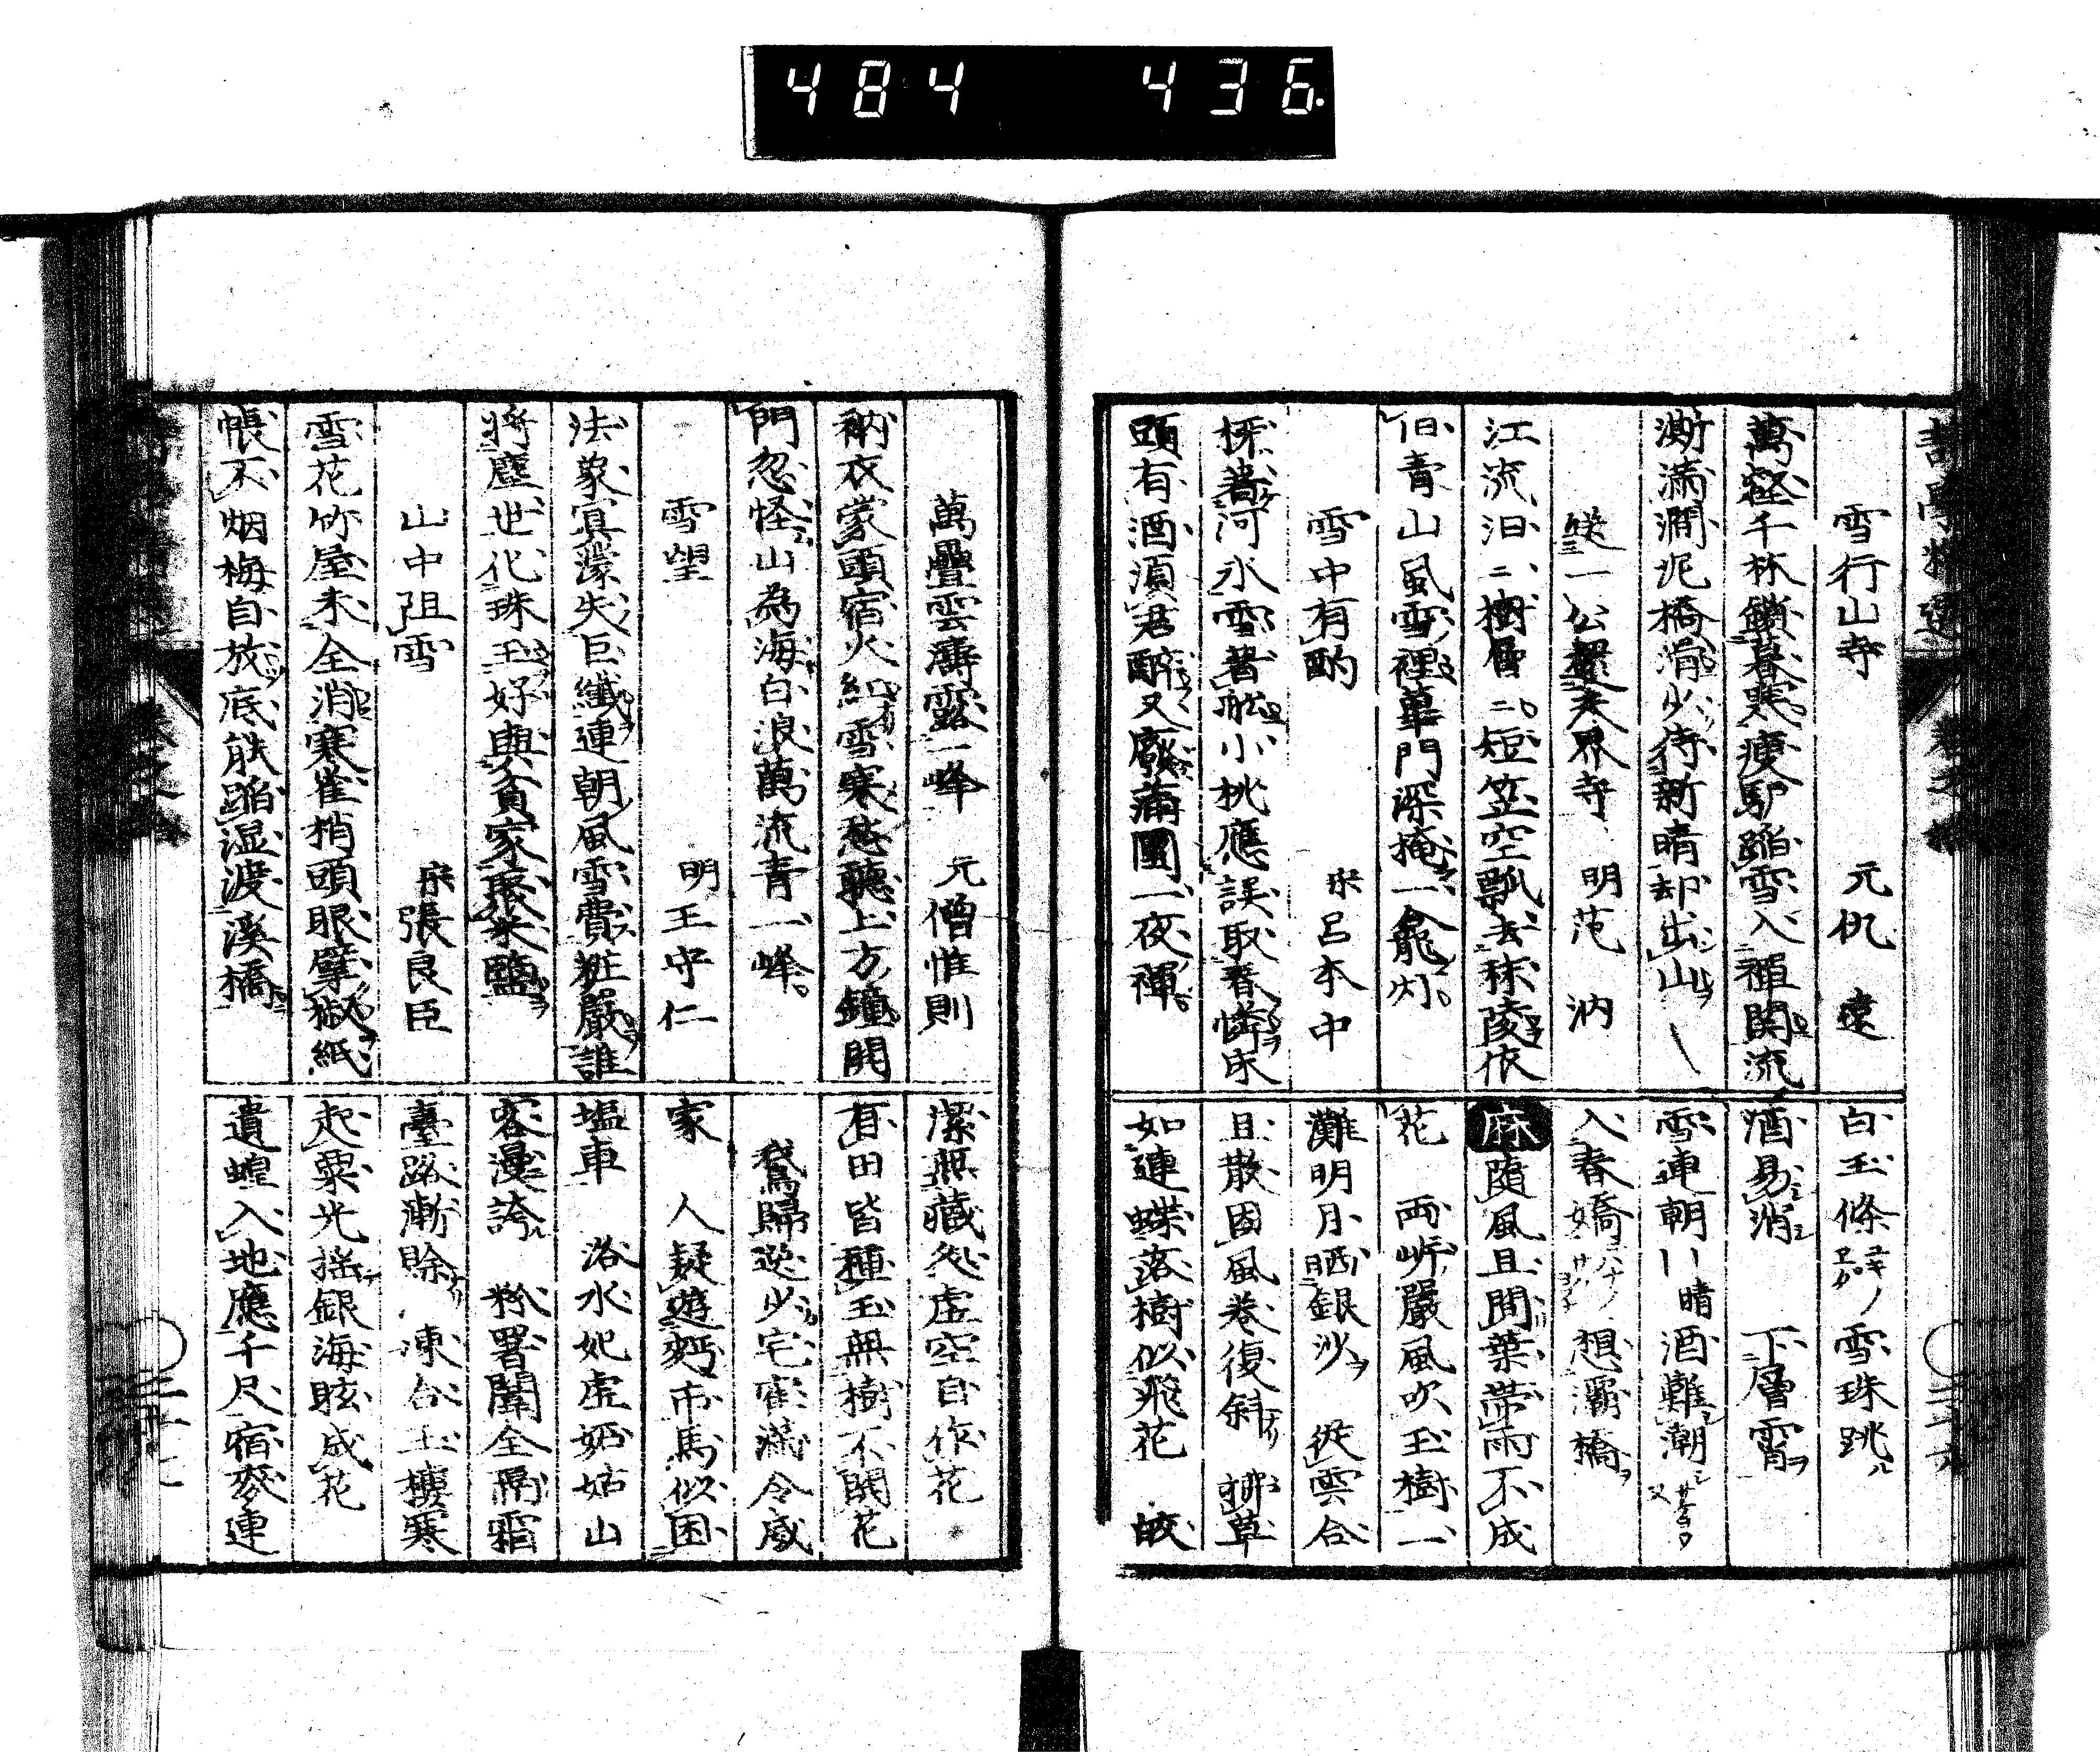 484 436.
雪行山寺 元仇遠
萬逕千林鎖暮寒瘦馿踏雪入禪関流
澌満澗泥橋滑少待新晴却出山
送一公還天界寺 明范汭
江流汩二樹層二短笠空瓢去秣陵依
旧青山風雪裡蓽門深掩一龕灯
雪中有酌 宋呂本中
探著河氷雪著舩小桃應誤取春憐床
頭有酒須君醉又廢蒲團一夜禪
白玉條ユキノエタ 雪珠跳ル
酒易消シ 下層霄ヲ
雪連朝 晴酒難潮シ
入春嬌 想灞橋ヲ
麻 隨風且間葉帯雨不成
花 両岍嚴風吹玉樹一
灘明月晒銀沙ヲ 從雲合
且散因風巻復斜 挪草
如連蝶落樹似飛花 皎
萬疊雲濤露一峰 元僧惟則
衲衣蒙頭宿火紅雪寒愁聽上方鐘開
門忽怪山為海白浪萬流青一峰
雪望 明王守仁
法象冥濛失巨纖連朝風雪費粧嚴誰
將塵世化珠玉好與貧家聚米鹽
山中阻雪 宋張良臣
雪花竹屋未全消寒雀梢頭眼擘椒紙
帳不烟梅自放底能踏湿渡溪橋
潔無藏処虚空自作花
有田皆種玉無樹不開花
鵞歸逕少宅寉満令威
家 人疑遊麪市馬似困
塩車 洛水妃虚妬姑山
客漫誇 粉署闈全隔霜
臺路漸賖 凍合玉樓寒
起粟光揺銀海眩成花
遺蝗入地應千尺宿麥連